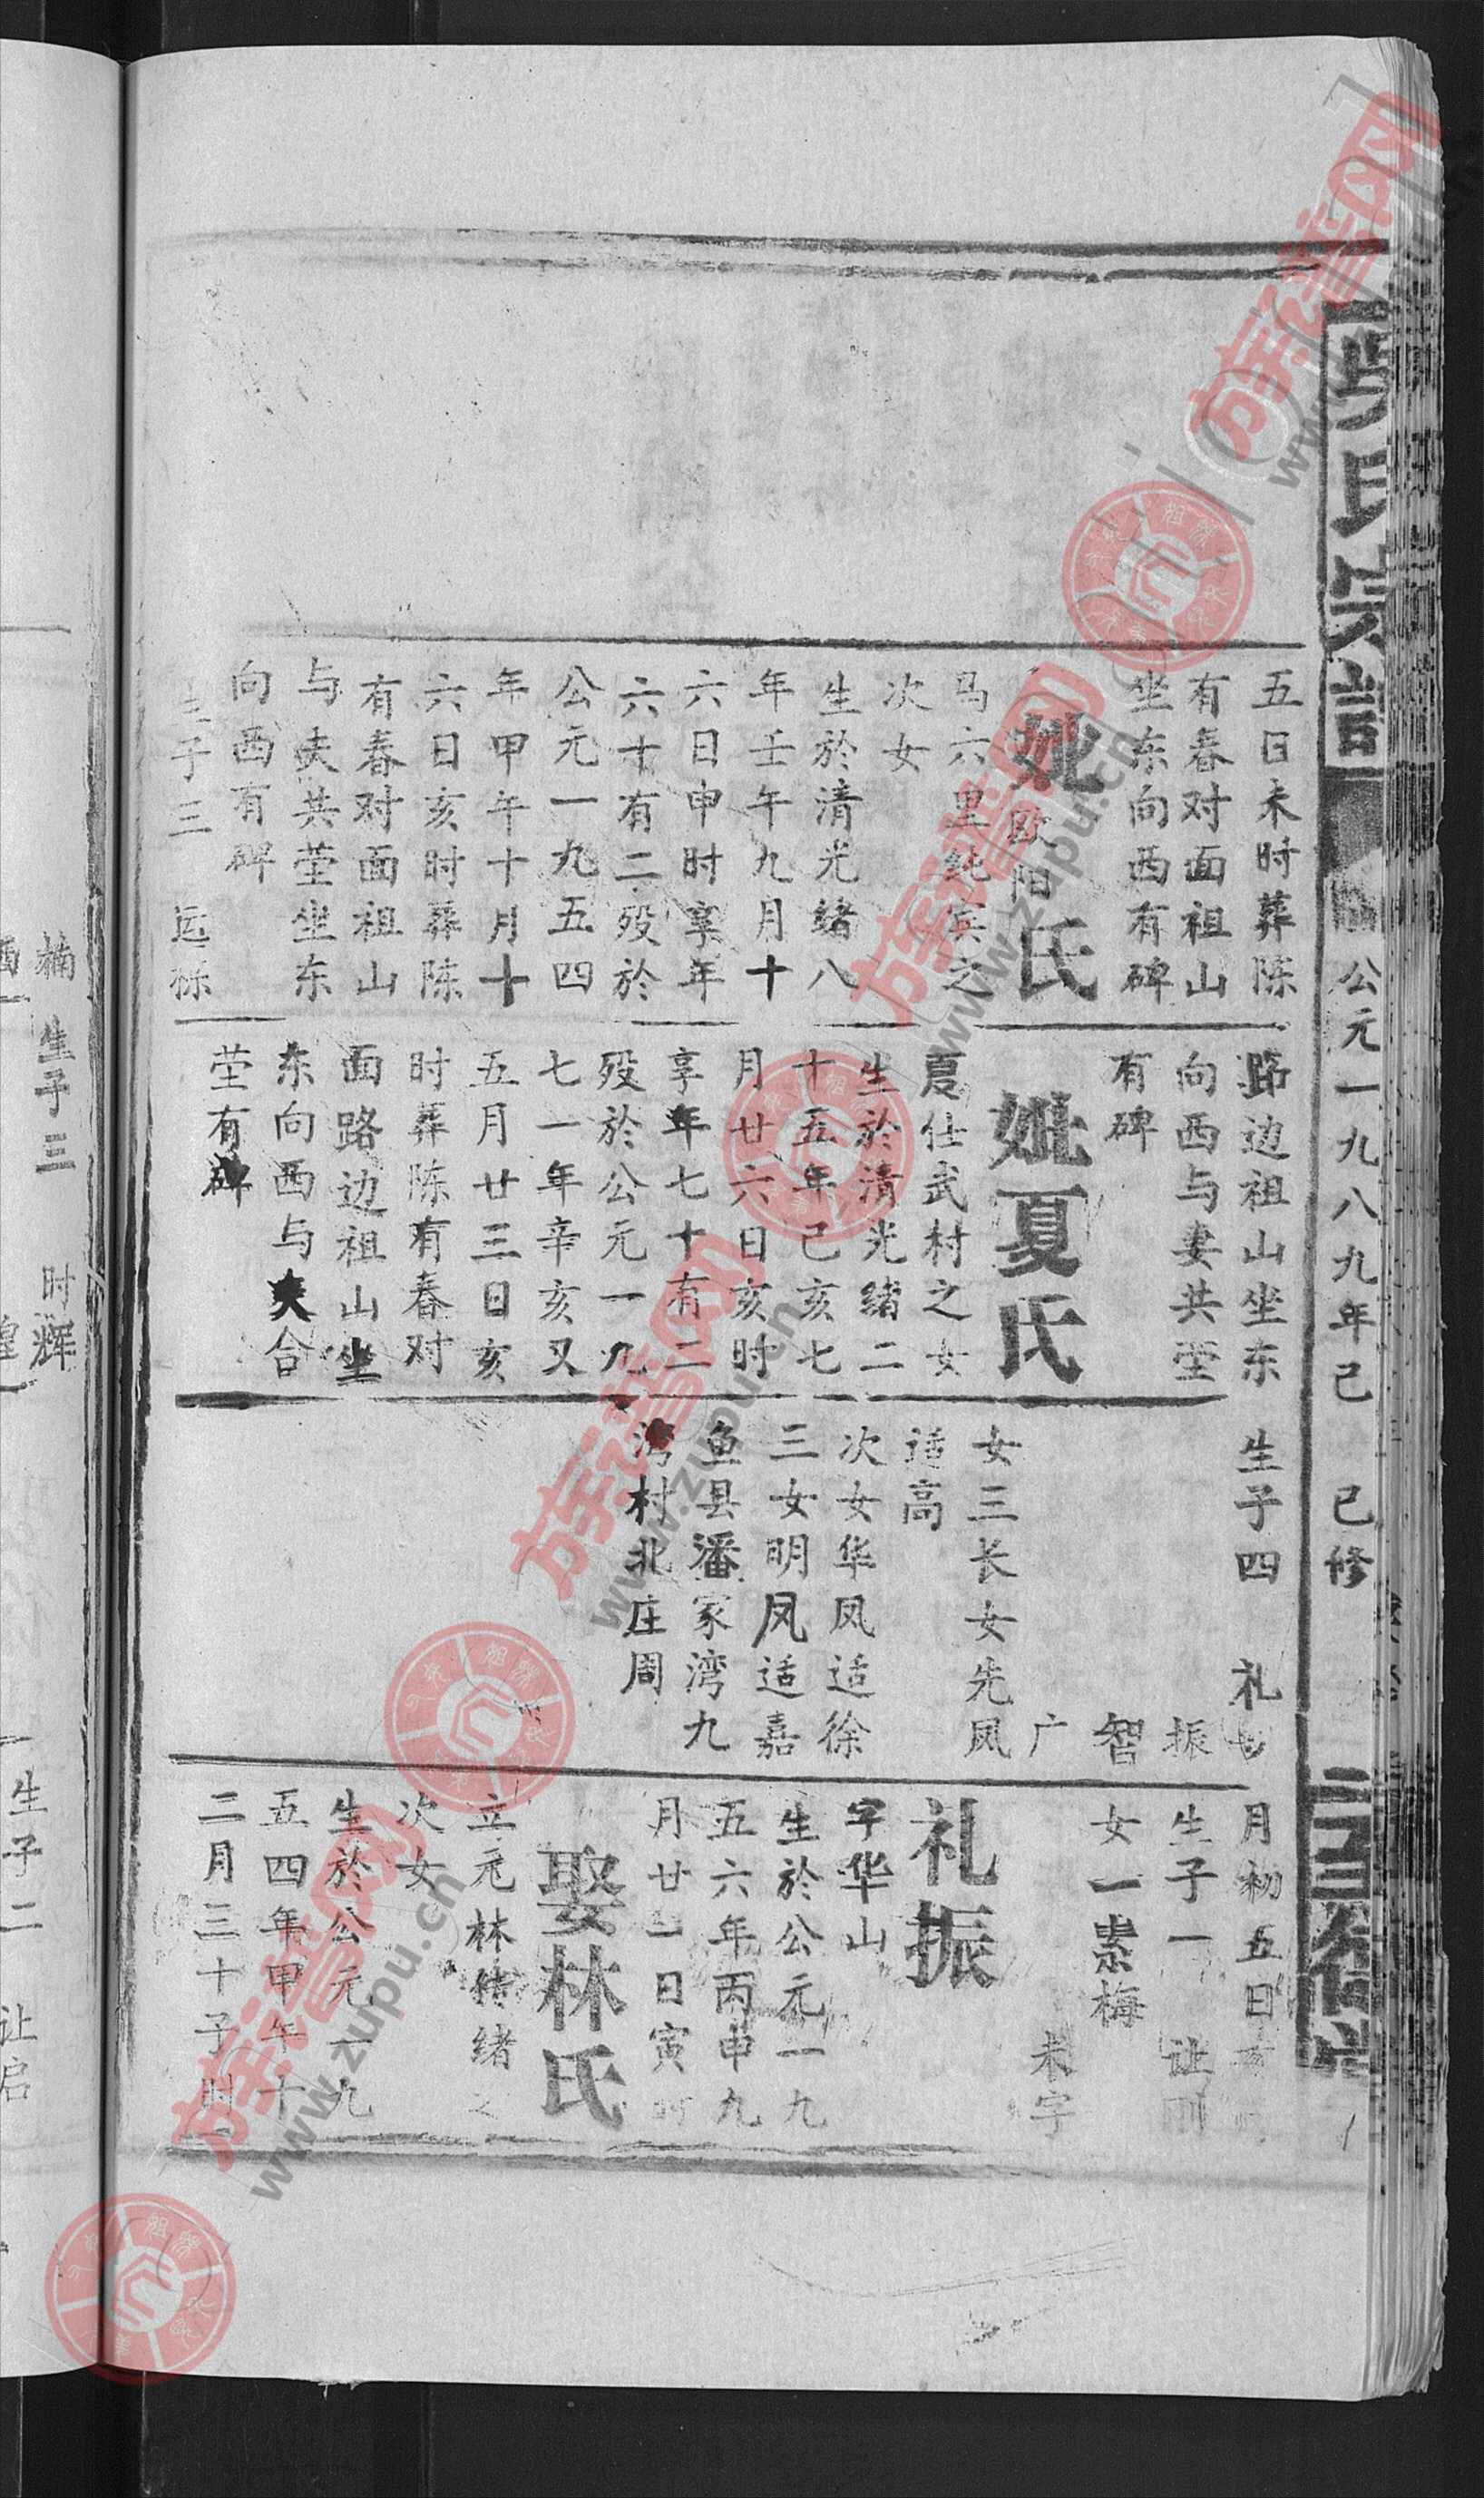 公元一九八九年己巳修
五日未时葬陈
有春对面祖山
坐东向西有碑
妣欧阳氏
马六里纯宾之
次女
生於清光绪八
年壬午九月十
六日申时享年
六十有二殁於
公元一九五四
年甲午十月十
六日亥时葬陈
有春对面祖山
与夫共茔坐东
向西有碑
生子三
路边祖山坐东
向西与妻共茔
有碑
妣夏氏
夏仕武村之女
生於清光绪二
十五年己亥七
月廿六日亥时
享年七十有二
殁於公元一九
七一年辛亥又
五月廿三日亥
时葬陈有春对
面路边祖山坐
东向西与夫合
茔有碑
生子四 礼
振
智
广
女三长女先凤
适高
次女华凤适徐
三女明凤适嘉
鱼县潘家湾九
湾村北庄周
月初五日
生子一 让刚
女一素梅
未字
礼振
字华山
生於公元一九
五六年丙申九
月廿二日寅时
娶林氏
立元林传绪之
次女
生於公元一九
五四年甲午十
二月三十子时
楠生子三 时辉
生子二 让启
族谱网
www.zupu.cn
族谱网
www.zupu.cn
族谱网
www.zupu.cn
族谱网
www.zupu.cn